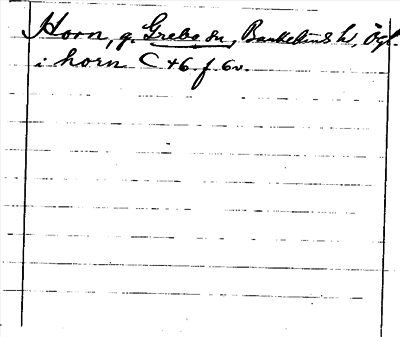 Horn, g. Grebo sn, Bankekinds hd, Ögl.
i horn C 46 f. 6v.